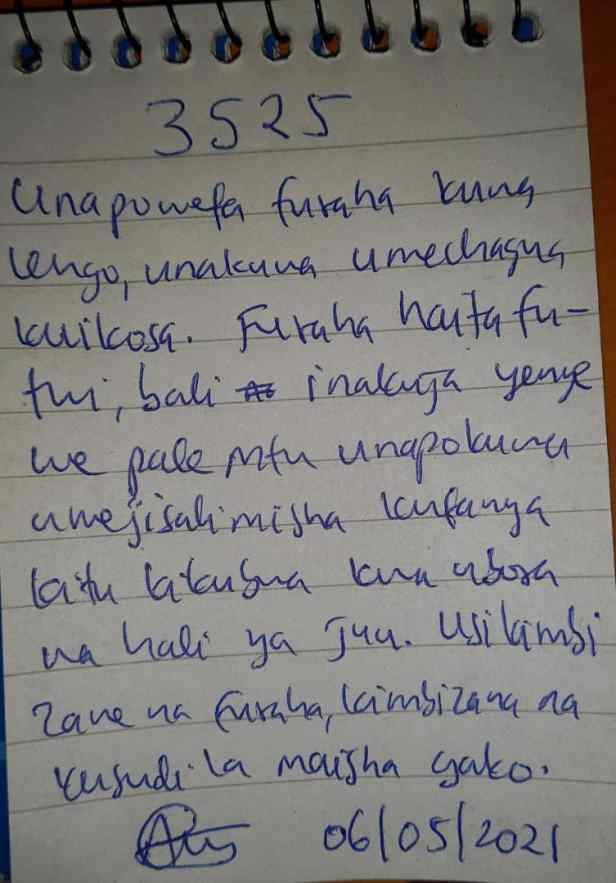 3525
Unapoweka furaha kuwa
lengo, unakuwa umechagua
kuikosa. Furaha haitafu-
twi, bali inakuja yenye
we pale mtu unapokuwa
umejisalimisha kufanya
kitu kikubwa kwa ubora
wa hali ya juu. Usikimbi
zane na furaha, kimbizana na
kusudi la maisha yako.
06/05/2021